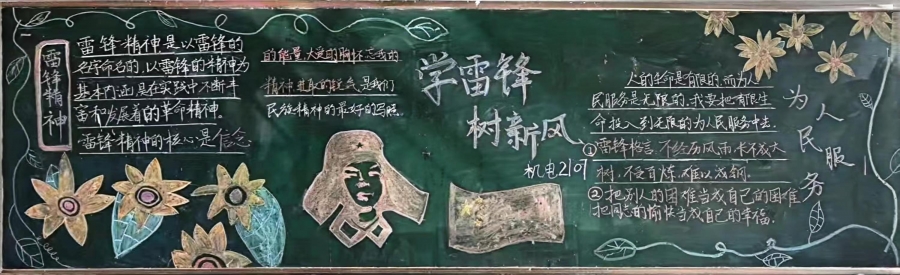 雷锋精神
雷锋精神是以雷锋的
名字命名的,以雷锋的精神为
基本内涵在实践中不断丰
富和发展着的革命精神。
雷锋精神的核心是信念
的能量,大爱的胸怀忘我的
精神进取的锐气,是我们
民族精神的最好的写照
学雷锋
树新风
机电2107
人的生命是有限的,而为人
民服务是无限的,我要把有限生
命投入到无限的为人民服务中去.
①雷锋格言 不经历风雨长不成大
树,不受百炼,难以成钢.
②把别人的困难当成自己的困难
把同志的愉快当成自己的幸福.
为人民服务